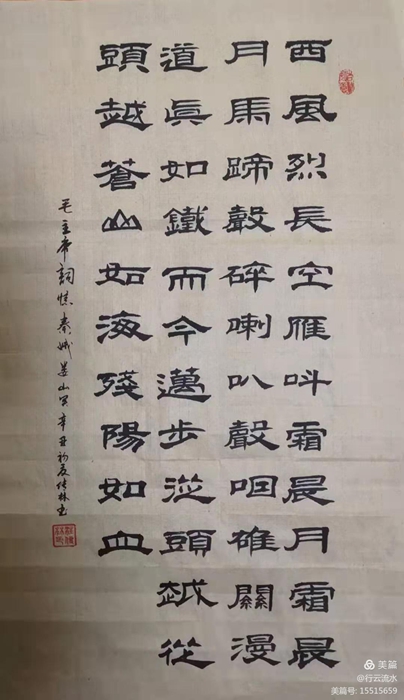 西風烈長空雁叫霜晨月霜晨
月馬蹄聲碎喇叭聲咽雄關漫
道眞如鐵而今邁步從頭越從
頭越蒼山如海殘陽如血
毛主席詞憶秦娥婁山関辛丑初夏林書
美篇
@行云流水
美篇号: 15515659